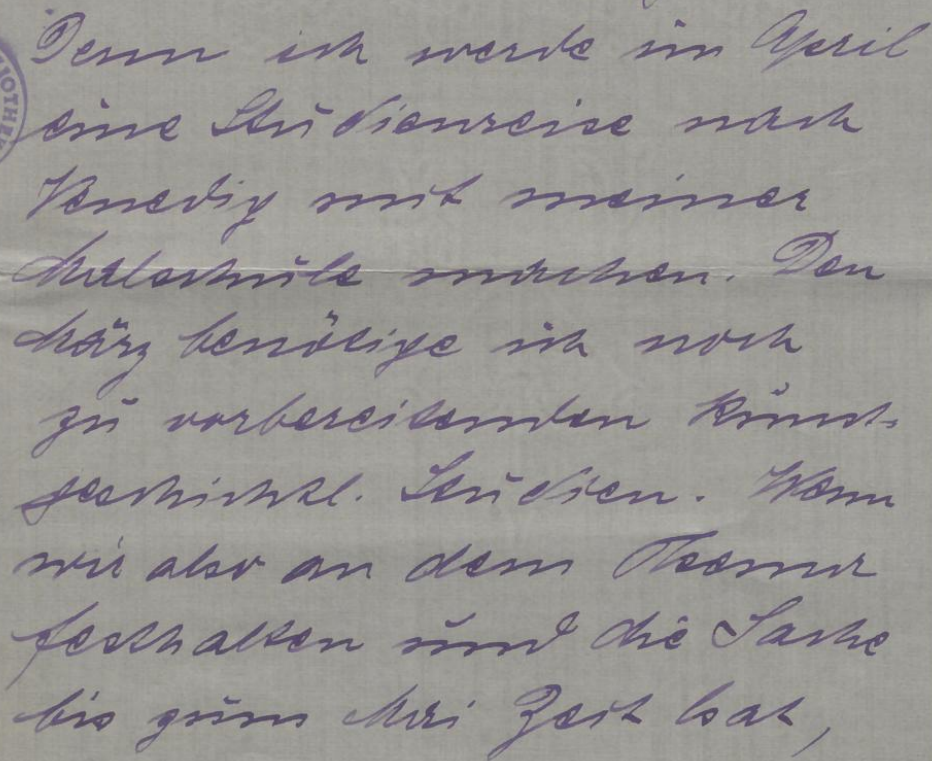 Denn ich werde im April
eine Studienreise nach
Venedig mit meiner
Malschule machen. Den
März benötige ich noch
zu vorbereitenden kunst-
geschichtl. Studien. Wenn
wir also an dem Thema
festhalten und die Sache
bis zum Mai Zeit hat,